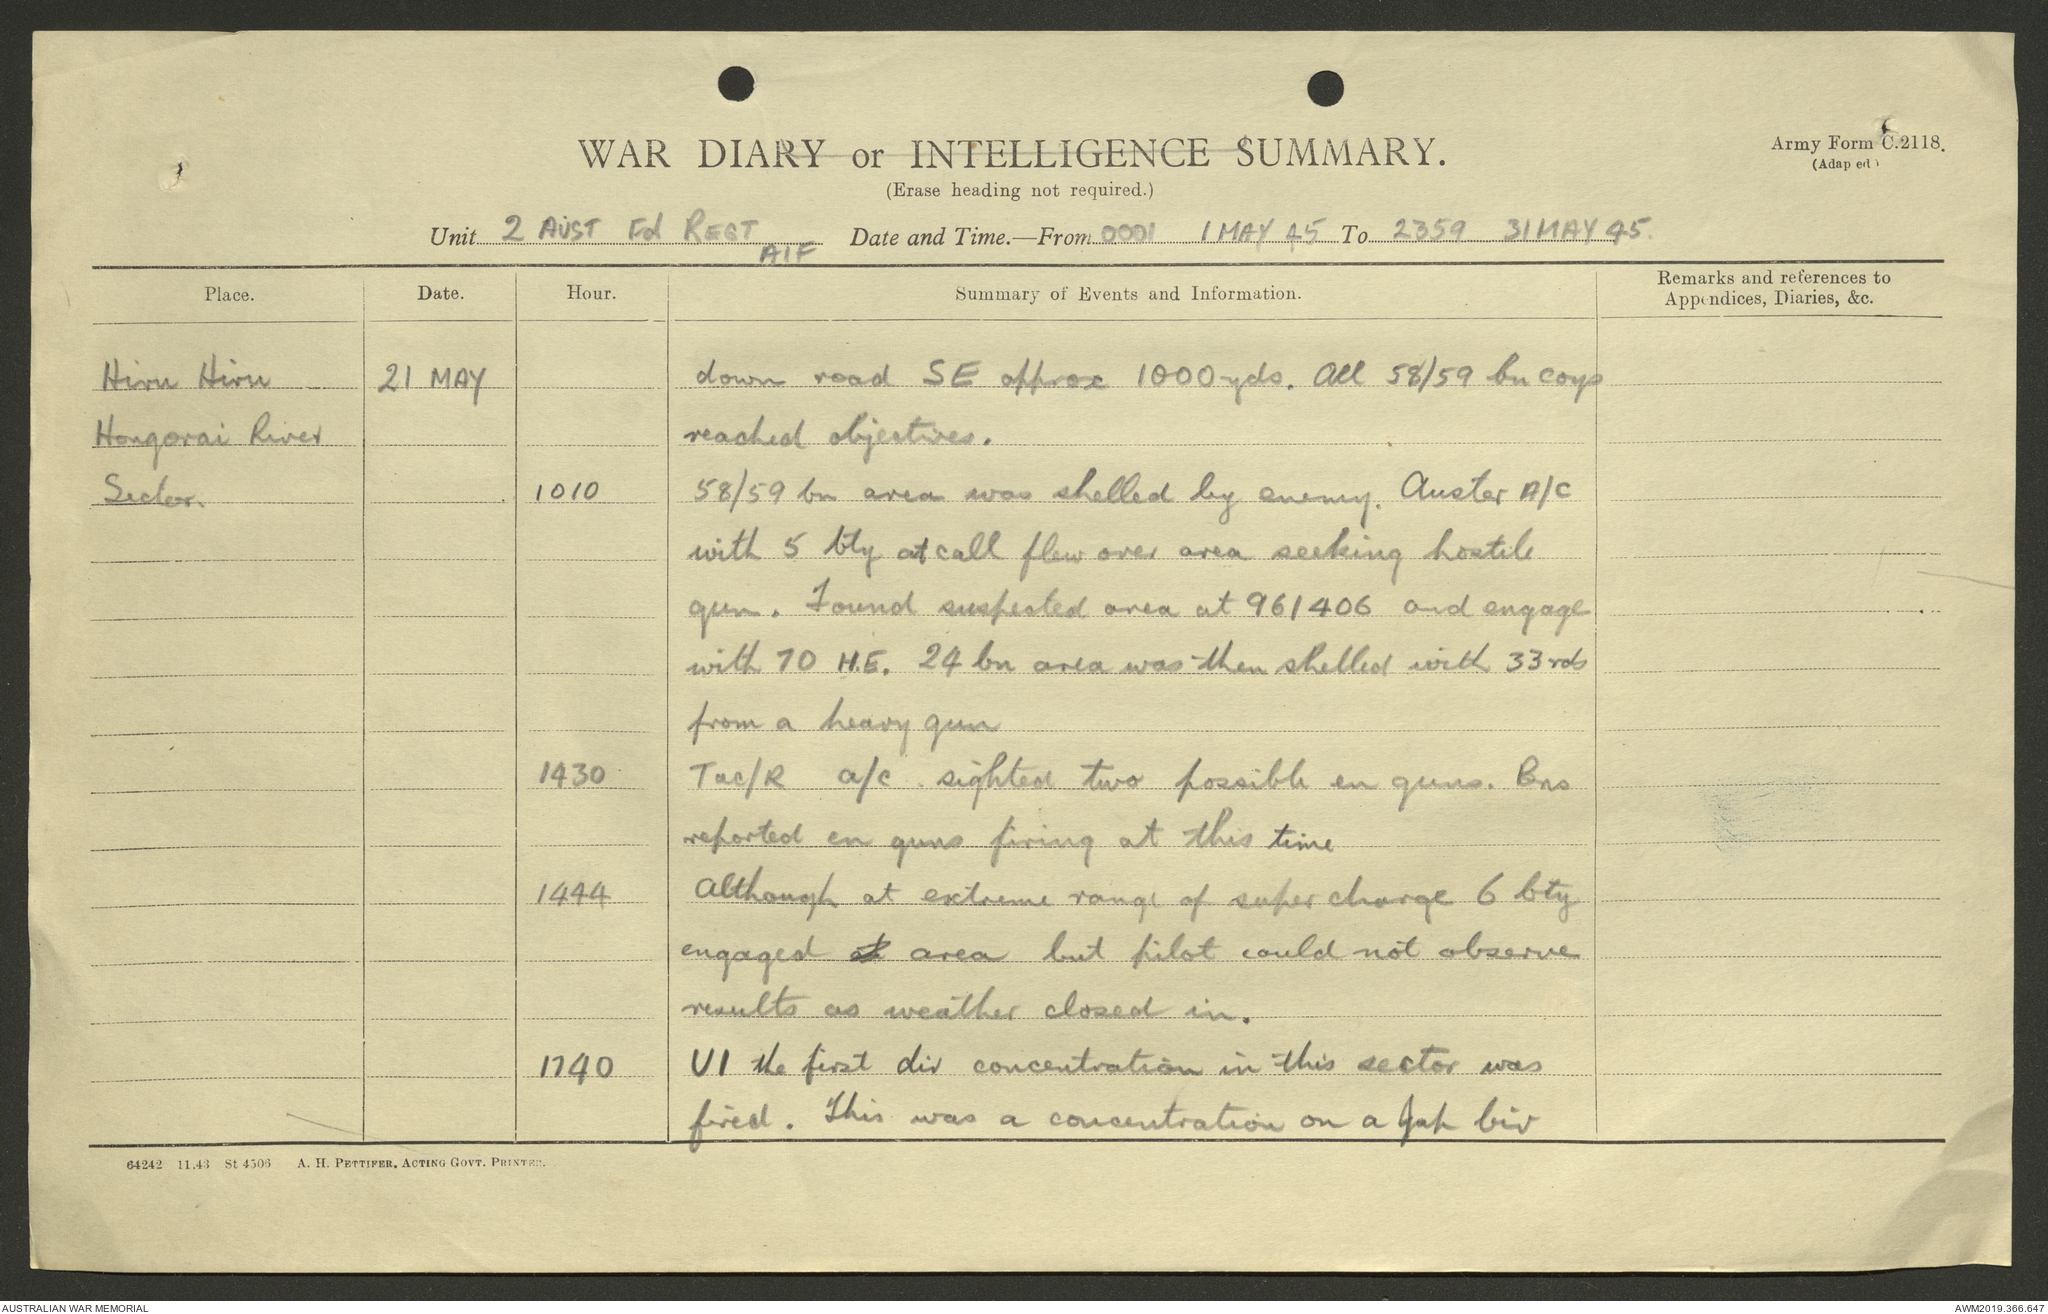 WAR DIARY or INTELLIGENCE SUMMARY.
Army Form C.2118.
(Adap ed)
(Erase heading not required.)
Unit 2 AUST Fd REGT AIF Date and Time.—From 0001 1 MAY 45 To 2359 31 MAY 45.
Place. Date. Hour. Summary of Events and Information. Remarks and references to Appendices, Diaries, &c.
Hiru Hiru 21 MAY down road SE approx 1000yds. All 58/59 bn coys
Hongorai River reached objectives.
Sector. 1010 58/59 bn area was shelled by enemy. Auster A/C
with 5 bty at call flew over area seeking hostile
gun. Found suspected area at 961406 and engage
with 70 H.E. 24 bn area was then shelled with 33 rds
from a heavy gun
1430 Tac/R a/c. sighted two possible en guns. Bns
reported en guns firing at this time
1444 Although at extreme range of super charge 6 bty
engaged area but pilot could not observe
results as weather closed in.
1740 U1 the first div concentration in this sector was
fired. This was a concentration on a Jap biv
64242 11.43 St 4506 A. H. PETTIFER, ACTING GOVT. PRINTER.
AUSTRALIAN WAR MEMORIAL
AWM2019.366.647